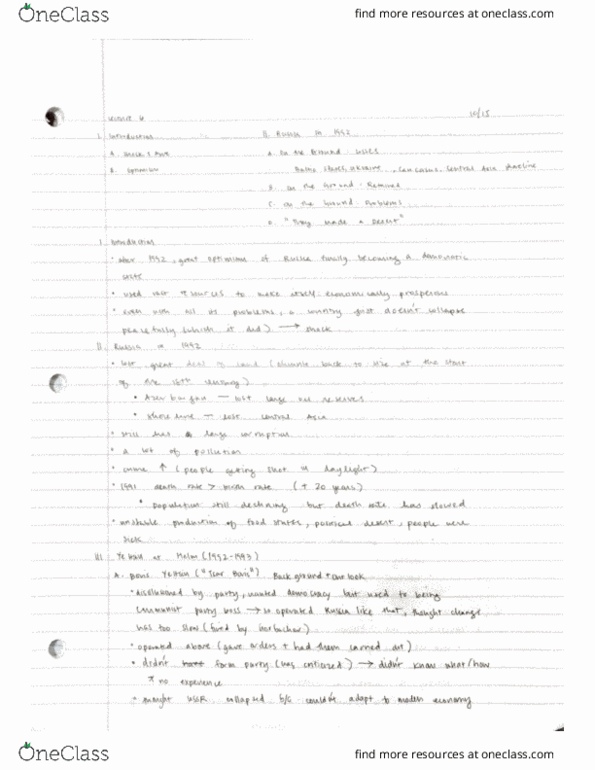 OneClass
find more resources at oneclass.com
Lecture 6 10/15
I. Introduction II. Russia in 1992
A. Shock & Awe A. On the Ground - Losses
B. Optimism Baltic States, Ukraine, Caucasus, Central Asia
B. On the Ground - Remained
C. On the Ground - Problems
D. "They Made a Desert"
I. Introduction
• after 1992, great optimism of Russia finally becoming a democratic
state
• used resources to make itself economically prosperous
• even with all its problems, a country just doesn't collapse
peacefully (which it did) → shock
II. Russia in 1992
• lost great deal of land ( back to size at the start
of the century)
• Azerbaijan — lost large oil reserves
• shoreline — lost Central Asia
• still has large corruption
• a lot of pollution
• crime ↑ (people getting shot in daylight)
• 1991 death rate > birth rate (+ 20 years)
• population still declining but death rate has slowed
• unstable production of food states, political desert, people were
sick
III. Yeltsin at Helm (1992-1993)
A. Boris Yeltsin ("Tsar Boris") Background + outlook
• disillusioned by party, wanted democracy but used to being
communist party boss → so operated Russia like that, thought change
was too slow (fired by Gorbachev)
• operated above (gave orders + had them carried out)
• didn't form party (was criticized) → didn't know what/how
no experience
• thought USSR collapsed b/c couldn't adapt to modern economy
OneClass
find more resources at oneclass.com